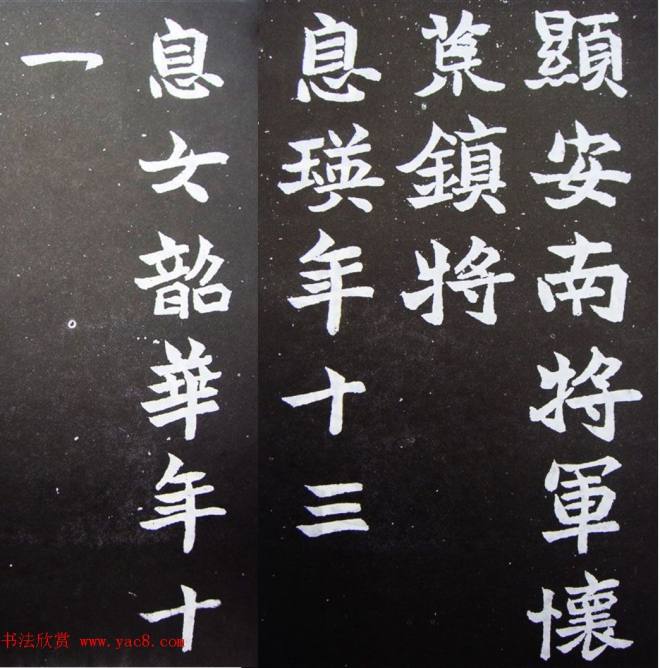 顯安南將軍懷
荒鎮將
息瑛年十三
息女韶華年十
一
书法欣赏 www.yac8.com